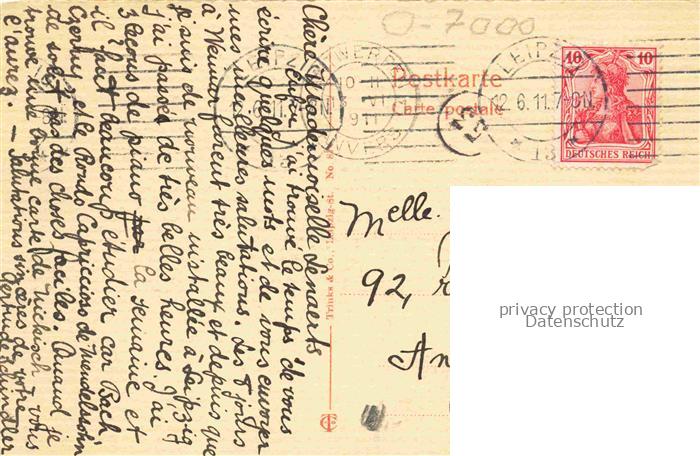 Chère Mademoiselle Lenaerts
Enfin j'ai trouvé le temps de vous
écrire quelques mots et de vous envoyer
mes meilleures salutations. Les 8 jours
à Weimar furent très beaux et depuis que
je suis de nouveau installée à Leipzig
j'ai passée de très belles heures. J'ai
3 leçons de piano la semaine et
il faut beaucoup étudier car Bach,
Czerny, et le Rondo Capriccioso de Mendelssohn
ne sont pas des choses faciles. Quand je
trouve une bonne carte de Nickisch vous
l'aurez. — Salutations sincères de votre
Gertrude Schindler
O-7000
Postkarte
Carte postale
LEIPZIG
12.6.11.7-8N.
* 13
ANTWERPEN
1911
ANVERS
10 10
DEUTSCHES REICH
Trinks & Co., Leipzig-St. No.
Melle.
92,
An
privacy protection
Datenschutz